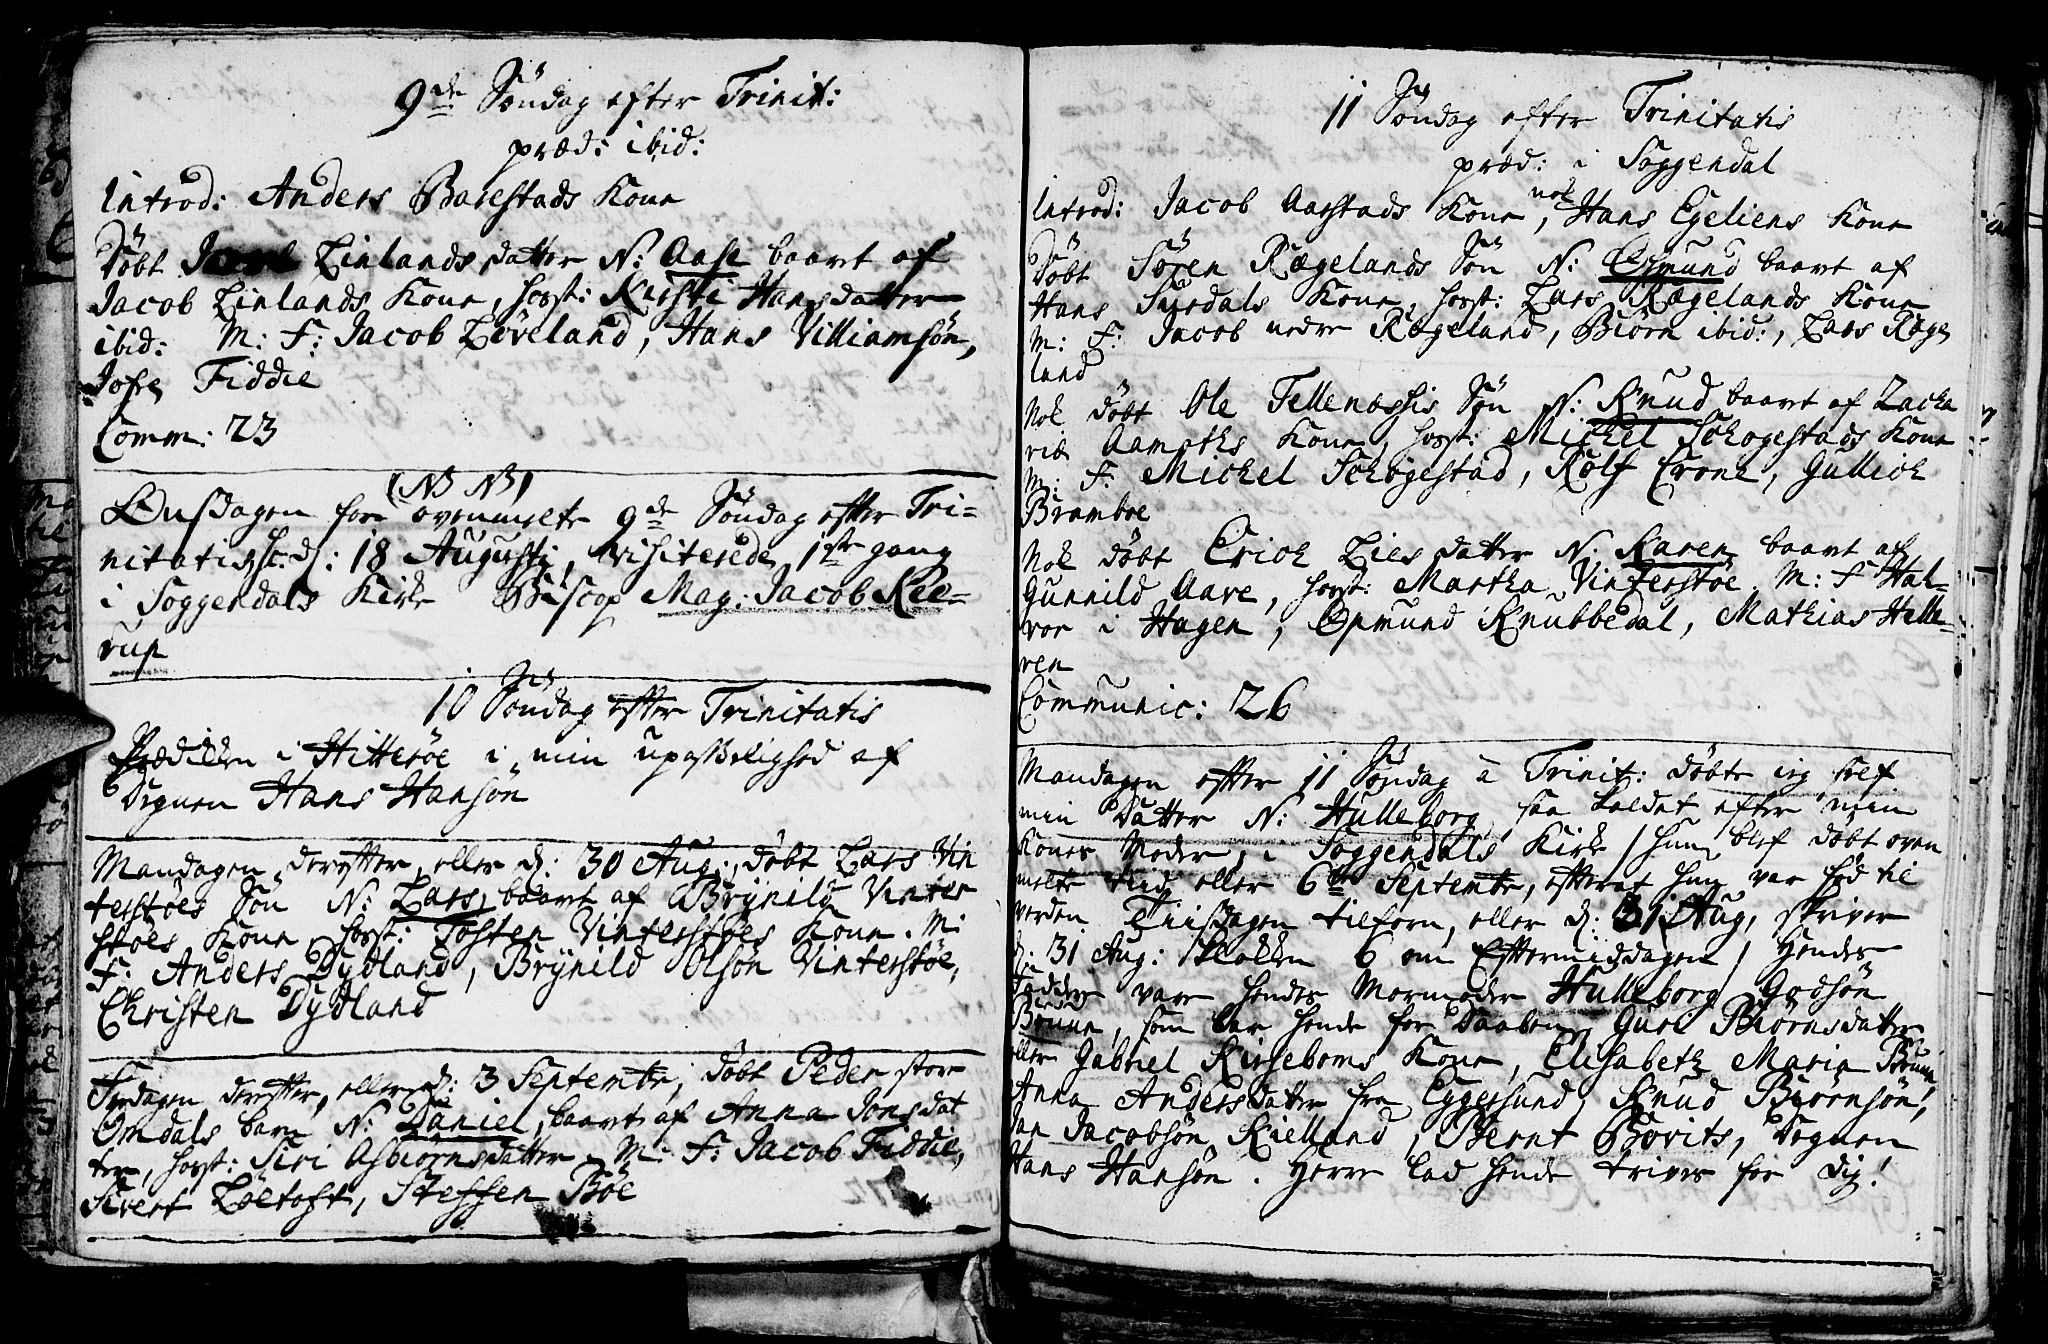 9de Søndag efter Trinit:
præd: ibid:
Introd: Anders Barstads Kone
Døbt Linlands datter N: Aase baaret af
Jacob Linlands Kone, horst: Kirsti Hansdatter
ibid: M: F: Jacob Løveland, Hans Villiamsøn,
Jofse Fiddie
Comm: 23
(NB NB)
Onsdagen for ovenmelte 9de Søndag efter Tri=
nitatis sc: d: 18 Augusti, visiterede 1ste gang
i Soggendals Kirke Biscop Mag: Jacob Kee=
rup
10 Søndag efter Trinitatis
Prædiken i Hitterøe i min upaslelighed af
Degnen Hans Hansøn
Mandagen derefter, eller d: 30 Aug:, døbt Lars Vin
terstøes Søn N: Lars, baaret af Brynild Vinter
støes Kone, horst: Tosten Vinterstøes Kone. M:
F: Anders Dydland, Brynild Olsøn Vinterstøe,
Christen Dydland
Fredagen derefter, eller d: 3 Septembr, døbt Peder store
Omdals barn N: Daniel, baaret af Anna Jonsdat
ter, horst: Siri Asbiørnsdatter. M: F: Jacob Fiddie,
Sivert Løetoft, Steffen Bøe
11 Søndag efter Trinitatis
præd: i Soggendal
Introd: Jacob Aarstads Kone, nok Hans Egeliens Kone
Døbt Søren Rægelands Søn N: Osmund baaret af
Hans Surdals Kone, horst: Lars Rægelands Kone
M: F: Jacob nedre Rægeland, Biørn ibid:, Lars Ræge
land
Nok døbt Ole Tellenæssis Søn N: Knud baaret af Zacha
rie Aamoths Kone, horst: Mickel Schogestads Kone
M: F: Mickel Schogestad, Rolf Crone, Gullich
Bramboe
Nok døbt Erich Lies datter N: Karen baaret af
Gunnild Aare, horst: Martha Vinterstøe. M: F: Hal=
vor i Hagen, Osmund Knubbedal, Mathias Helle=
ren
Communic: 26
Mandagen efter 11 Søndag a Trinit: døbte ieg self
min Datter N: Hulleborg, saa kaldet efter min
Kones Moder, i Soggendals Kirke / hun blef døbt oven
melte tiid eller 6te Septembr, efterat hun var fød til
verden Tiisdagen tilforn, eller d: 31 Aug, skriver
d: 31 Aug: klokken 6 om Eftermiddagen / Hendes
Faddere vare hendes Mormoder Hulleborg Godsøn
Bruun, som bar hende for Daaben, Guri Biørnsdatter
eller Gabriel Kirseboms Kone, Elisabeth Maria Bruun,
Anna Andersdatter fra Eggersund, Knud Biørnsøn,
Jan Jacobsøn Kielland, Bernt Bovits, Degnen
Hans Hansøn. Herre lad hende trives for dig!